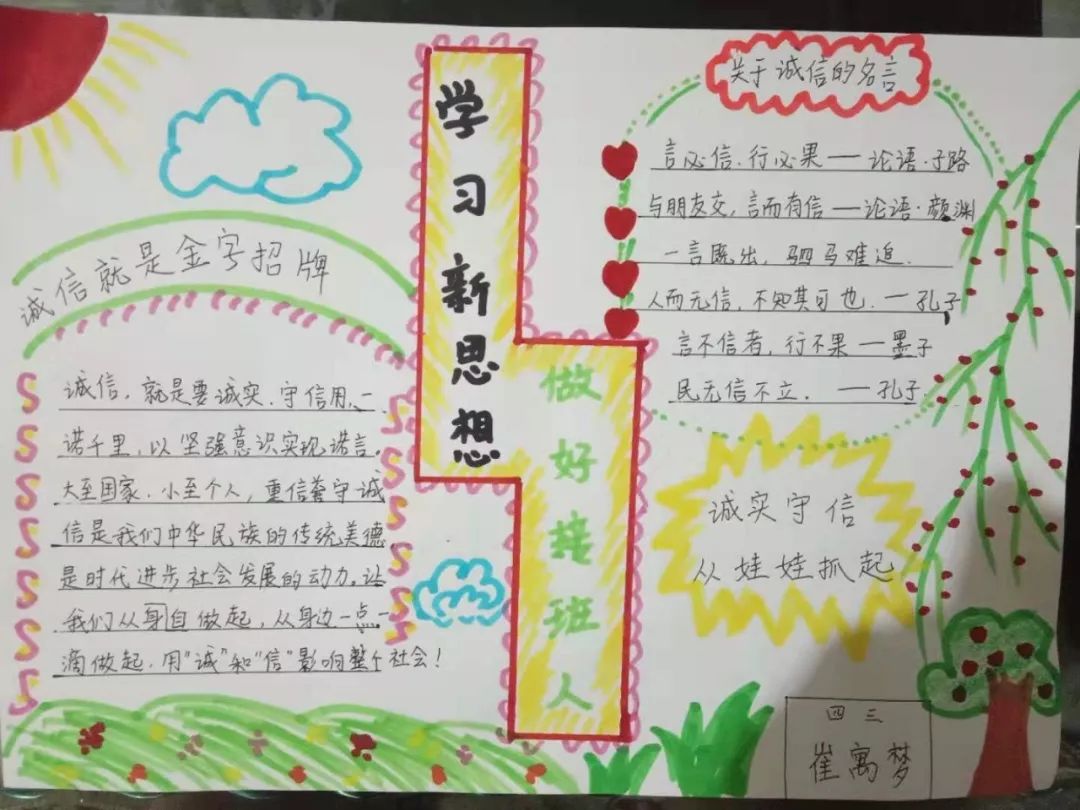 诚信就是金字招牌
诚信，就是要诚实.守信用.一
诺千里，以坚强意识实现诺言.
大至国家.小至个人，重信誉守诚
信是我们中华民族的传统美德
是时代进步社会发展的动力。让
我们从身自做起，从身边一点一
滴做起.用"诚"和"信"影响整个社会！
学习新思想
做好接班人
关于诚信的名言
言必信.行必果——论语·子路
与朋友交，言而有信——论语·颜渊
一言既出，驷马难追.
人而无信，不知其可也.—孔子
言不信者，行不果—墨子
民无信不立.——孔子
诚实守信
从娃娃抓起
四三
崔寓梦